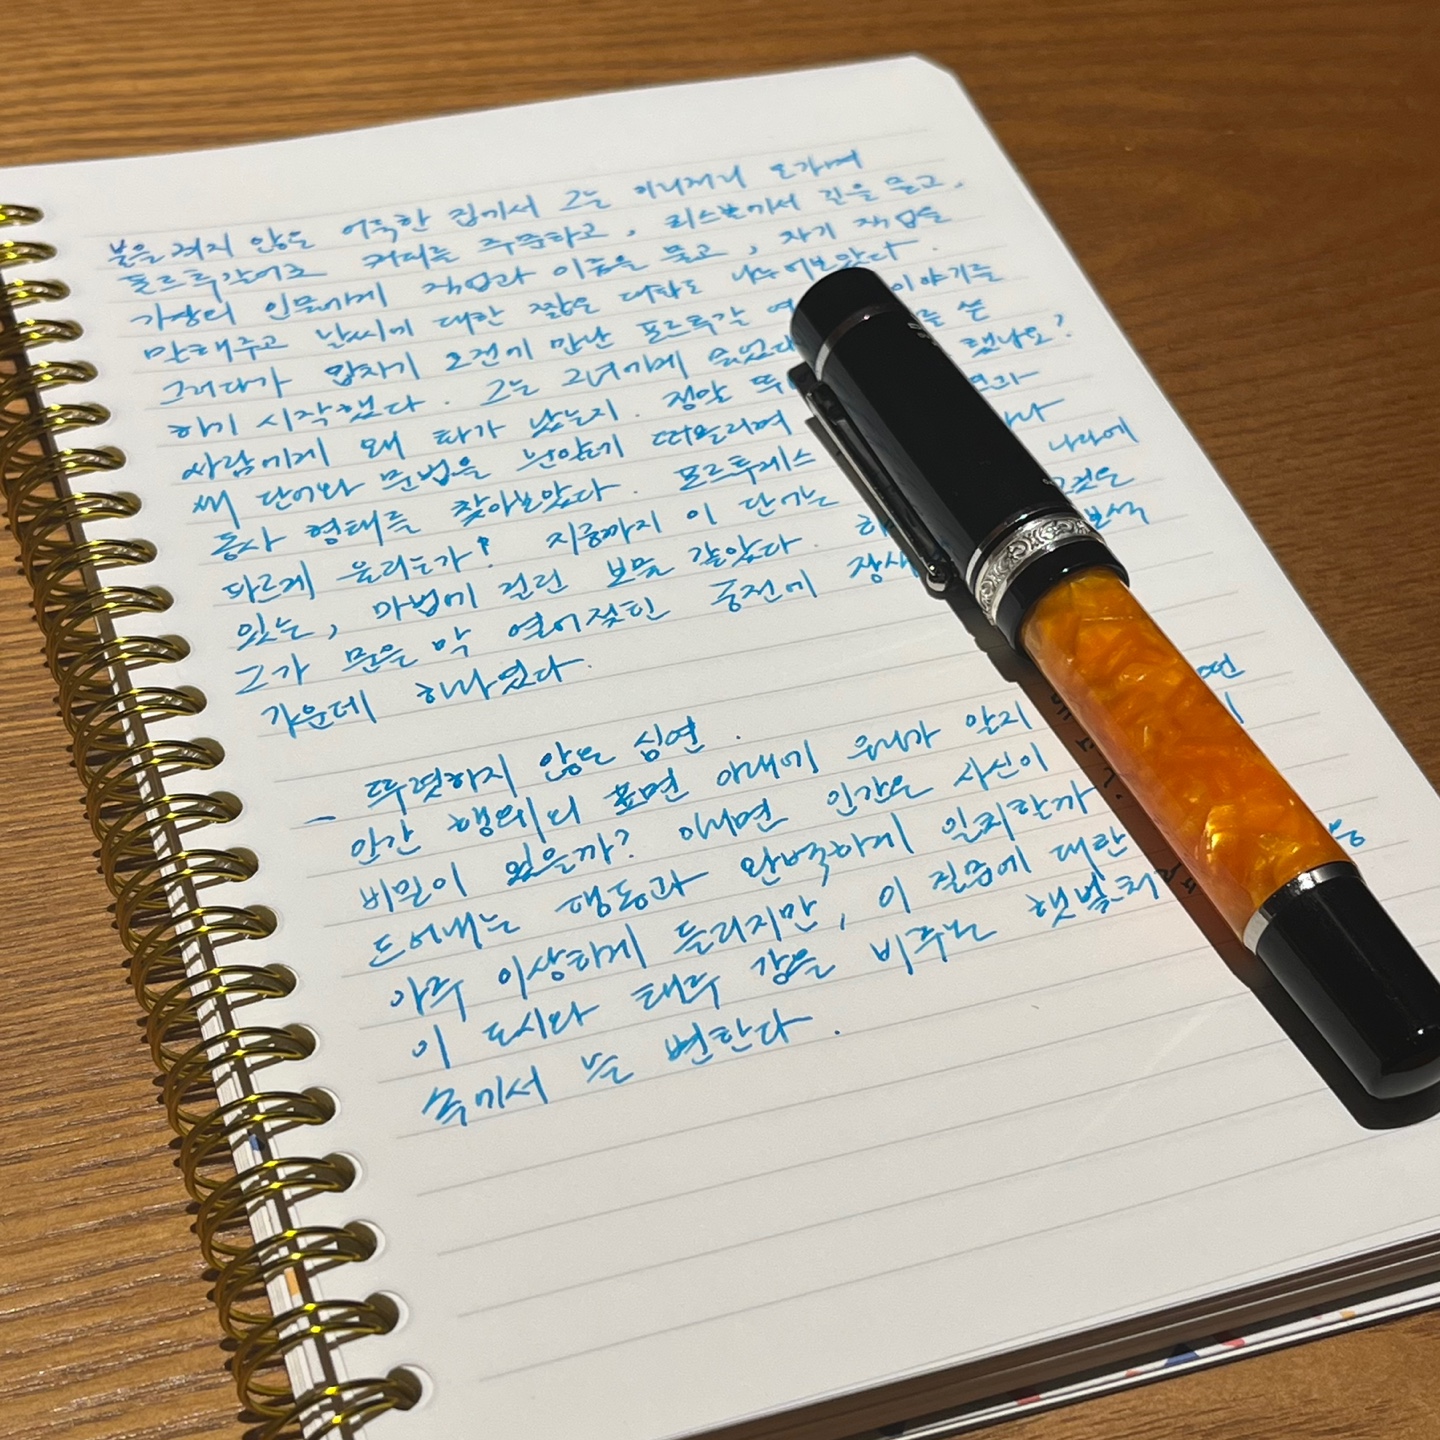 불을 켜지 않은 어둑한 집에서 그는 이리저리 오가며
포르투갈어로 커피를 주문하고, 리스본에서 길을 묻고,
가상의 인물에게 직업과 이름을 묻고, 자기 직업을
말해주고 날씨에 대한 짧은 대화도 나누어보았다.
그러다가 갑자기 오전에 만난 포르투갈 이야기를
하기 시작했다. 그는 그녀에게 물었다 쓴
사람에게 왜 화가 났는지. 정말 했나요?
새 단어와 문법을 눈앞에 떠올리며
동사 형태를 찾아보았다. 포르투게스 나라에
다르게 울리는가! 지금까지 이 단어는 그것은
있는, 마법에 걸린 보물 같았다. 보석
그가 문을 막 열어젖힌 궁전에
가운데 하나였다.
- 뚜렷하지 않은 심연.
인간 행위의 표면 아래에 우리가 알지
비밀이 있을까? 아니면 인간은 자신이
드러내는 행동과 완벽하게 일치할까
아주 이상하게 들리지만, 이 질문에 대한
이 도시와 테주 강을 비추는 햇빛처
속에서 늘 변한다.